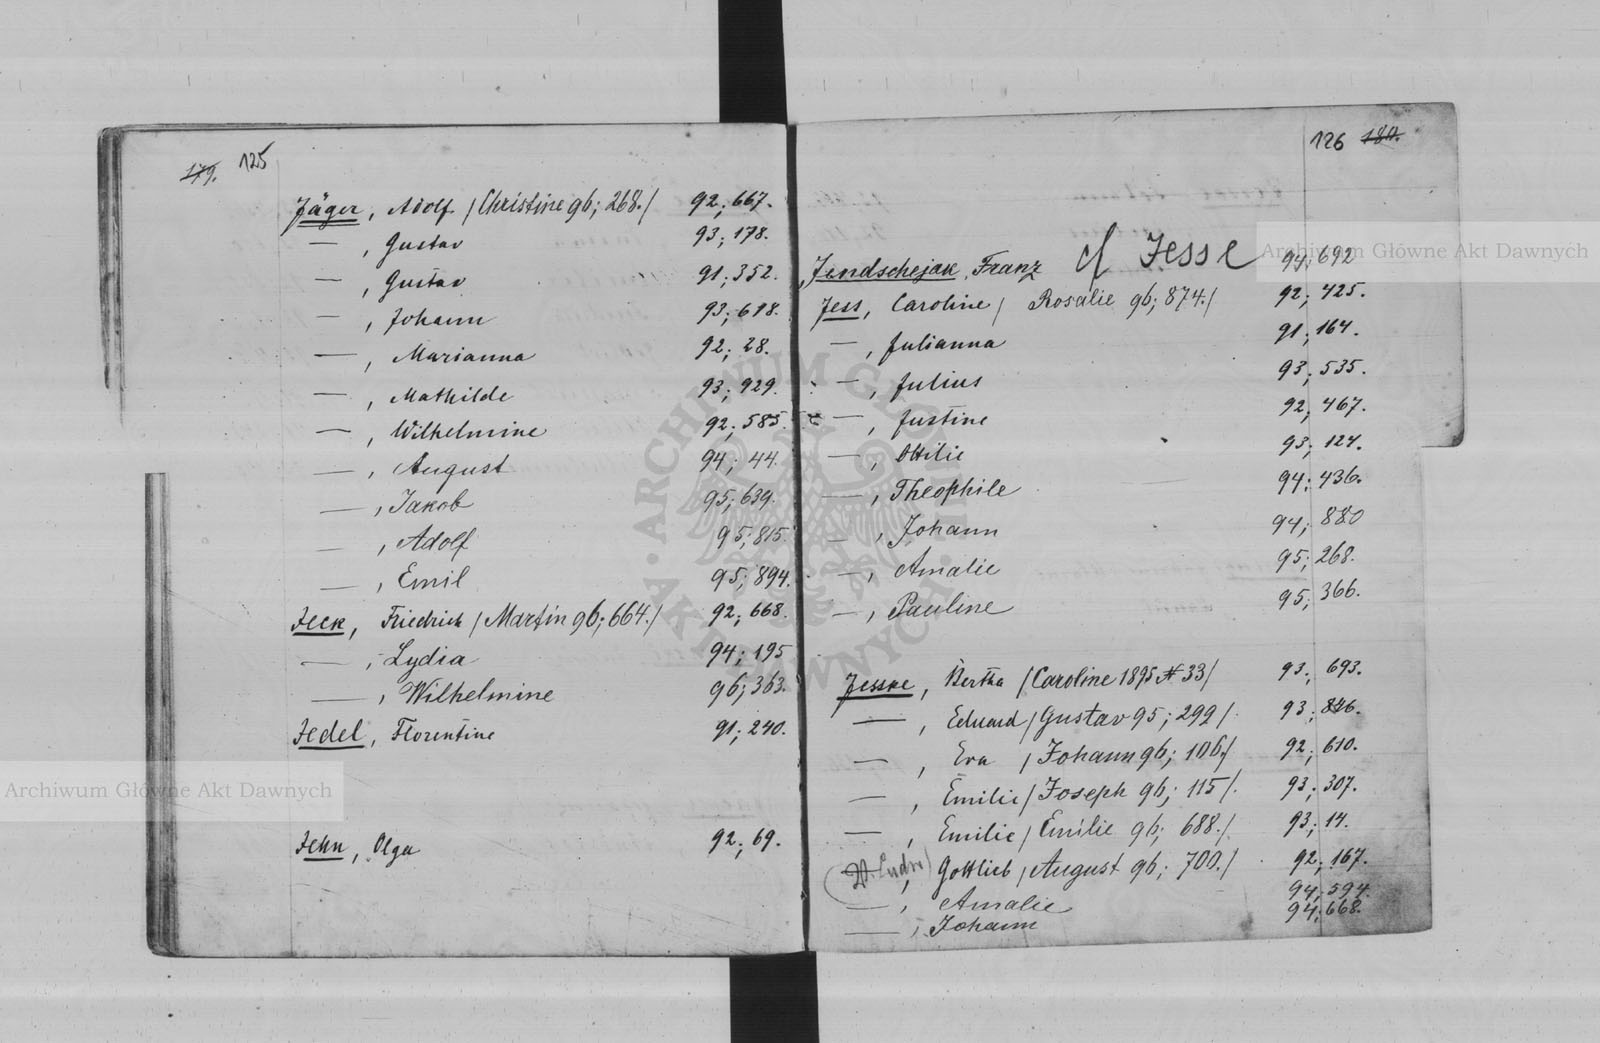 179. 125
Jäger, Adolf /Christine 96; 268./ 92; 667.
— , Gustav 93; 178.
— , Gustav 91; 352.
— , Johann 93; 618.
— , Marianna 92; 28.
— , Mathilde 93; 929.
— , Wilhelmine 92; 585.
— , August 94; 44.
— , Jakob 95; 639.
— , Adolf 95; 815.
— , Emil 95; 894.
Jeck, Friedrich /Martin 96; 664./ 92; 668.
— , Lydia 94; 195
— , Wilhelmine 96; 363.
Jedel, Florentine 91; 240.
Jehn, Olga 92; 69.
126 180.
cf Jesse
Jendschejak, Franz 94; 692
Jess, Caroline / Rosalie 96; 874./ 92; 425.
— , Julianna 91; 164.
— , Julius 93; 535.
— , Justine 92; 467.
— , Ottilie 93; 124.
— , Theophile 94; 436.
— , Johann 94; 880
— , Amalie 95; 268.
— , Pauline 95; 366.
Jeske, Bertha /Caroline 1895 № 33/ 93; 693.
— , Eduard /Gustav 95; 299/. 93; 846.
— , Eva /Johann 96; 106/ 92; 610.
— , Emilie /Joseph 96; 115/. 93; 307.
— , Emilie /Emilie 96; 688./ 93; 14.
, Gottlieb /August 96; 700./ 92; 167.
— , Amalie 94; 594.
— , Johann 94; 668.
ARCHIWUM GŁÓWNE AKT DAWNYCH
Archiwum Główne Akt Dawnych
Archiwum Główne Akt Dawnych